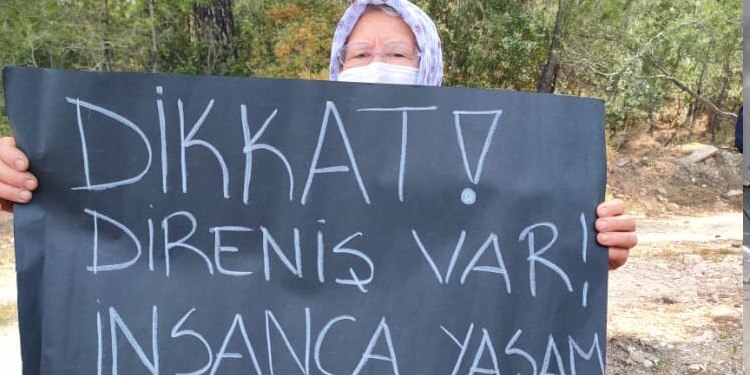 DİKKAT!
DİRENİŞ VAR!
İNSANCA YAŞAM